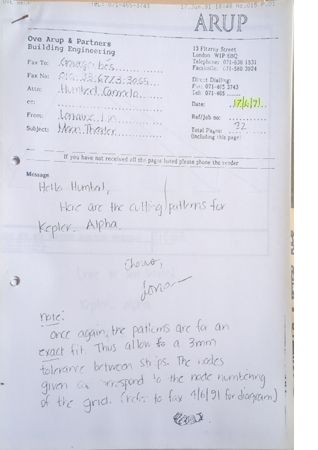 ARUP
Ove Arup & Partners
Building Engineering
13 Fitzroy Street
London W1P 6BQ
Telephone: 071-636 1531
Facsimile: 071-580 3924
Fax To:
Fax No:
Direct Dialling:
Fax: 071-465 3743
Tel: 071-465
Attn: Humbert
cc:
Date: 17/6/91
From:
Ref/Job no:
Subject: Theater
Total Pages: 22
(including this page)
If you have not received all the pages listed please phone the sender
Message
Hello Humbert,
Here are the cutting patterns for
Kepler. Alpha.
note:
Once again, the patterns are for an
exact fit. Thus allow for a 3mm
tolerance between strips. The nodes
given correspond to the node numbering
of the grid. (refer to fax 4/6/91 for diagram)